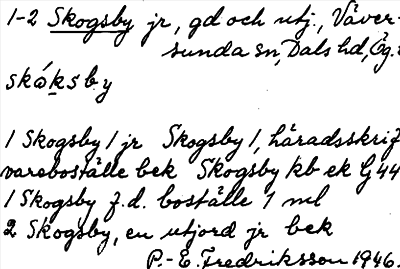 1-2 Skogsby jr, gd och utj., Väver-
sunda sn, Dals hd, Ög.
skóksby
1 Skogsby 1 jr Skogsby 1, häradsskrif
vareboställe bek Skogsby kb ek G 44
1 Skogsby f.d. boställe 1 ml
2 Skogsby, en utjord jr bek
P.-E. Fredriksson 1946.